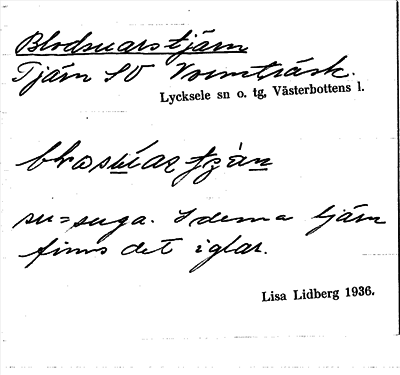 Blodsuarstjärn
Tjärn SO Vormträsk.
Lycksele sn o. tg, Västerbottens l.
su = suga. I denna tjärn
finns det iglar.
Lisa Lidberg 1936.